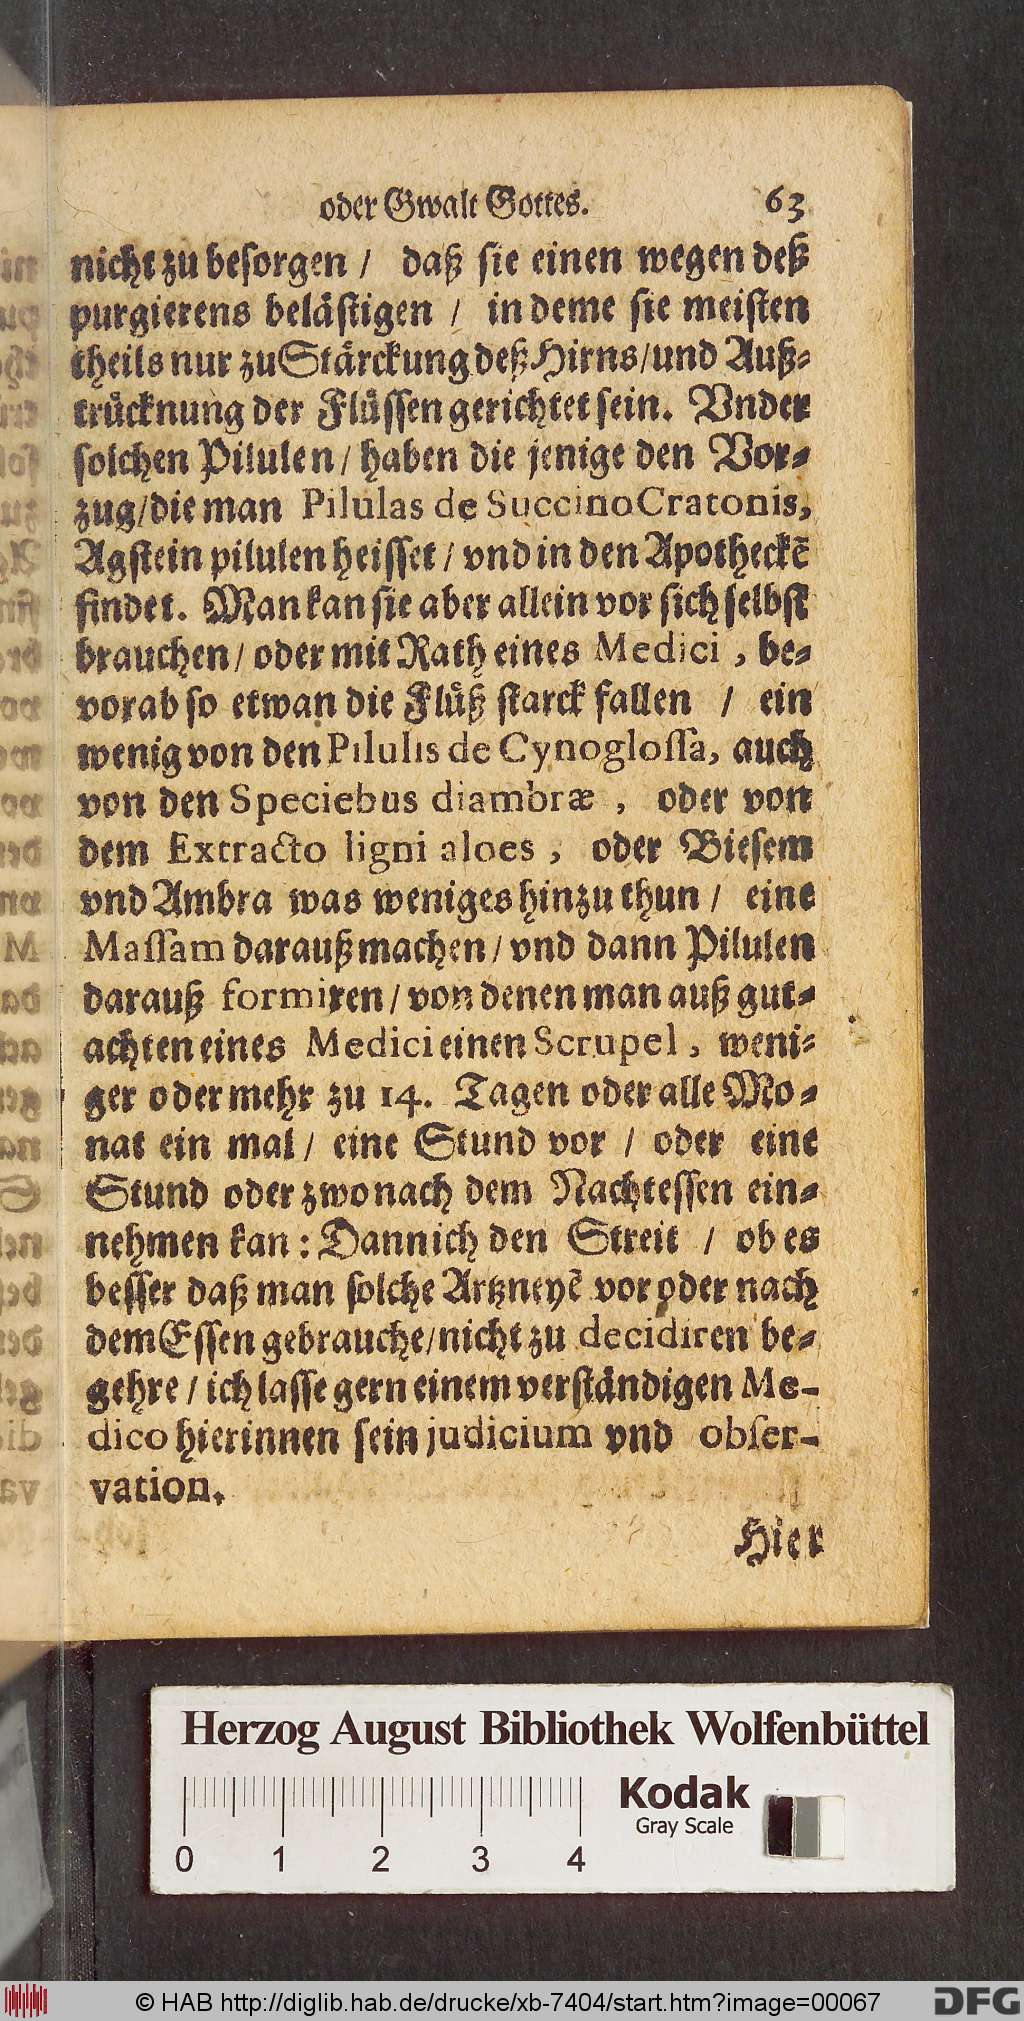 oder Gwalt Gottes. 63
nicht zu besorgen / daß sie einen wegen deß
purgierens belästigen / in deme sie meisten
theils nur zu Stärckung deß Hirns / und Auß⸗
trücknung der Flüssen gerichtet sein. Vnder
solchen Pilulen / haben die jenige den Vor⸗
zug / die man Pilulas de Succino Cratonis,
Agstein pilulen heisset / vnd in den Apotheckẽ
findet. Man kan sie aber allein vor sich selbst
brauchen / oder mit Rath eines Medici, be⸗
vorab so etwan die Flüß starck fallen / ein
wenig von den Pilulis de Cynoglossa, auch
von den Speciebus diambræ, oder von
dem Extracto ligni aloes, oder Biesem
vnd Ambra was weniges hinzu thun / eine
Massam darauß machen / vnd dann Pilulen
darauß formiren / von denen man auß gut⸗
achten eines Medici einen Scrupel, weni⸗
ger oder mehr zu 14. Tagen oder alle Mo⸗
nat ein mal / eine Stund vor / oder eine
Stund oder zwo nach dem Nachtessen ein⸗
nehmen kan: Dann ich den Streit / ob es
besser daß man solche Artzneyẽ vor oder nach
dem Essen gebrauche / nicht zu decidiren be⸗
gehre / ich lasse gern einem verständigen Me-
dico hierinnen sein judicium vnd obser-
vation.
Hier
Herzog August Bibliothek Wolfenbüttel
Kodak
Gray Scale
0 1 2 3 4
© HAB http://diglib.hab.de/drucke/xb-7404/start.htm?image=00067
DFG